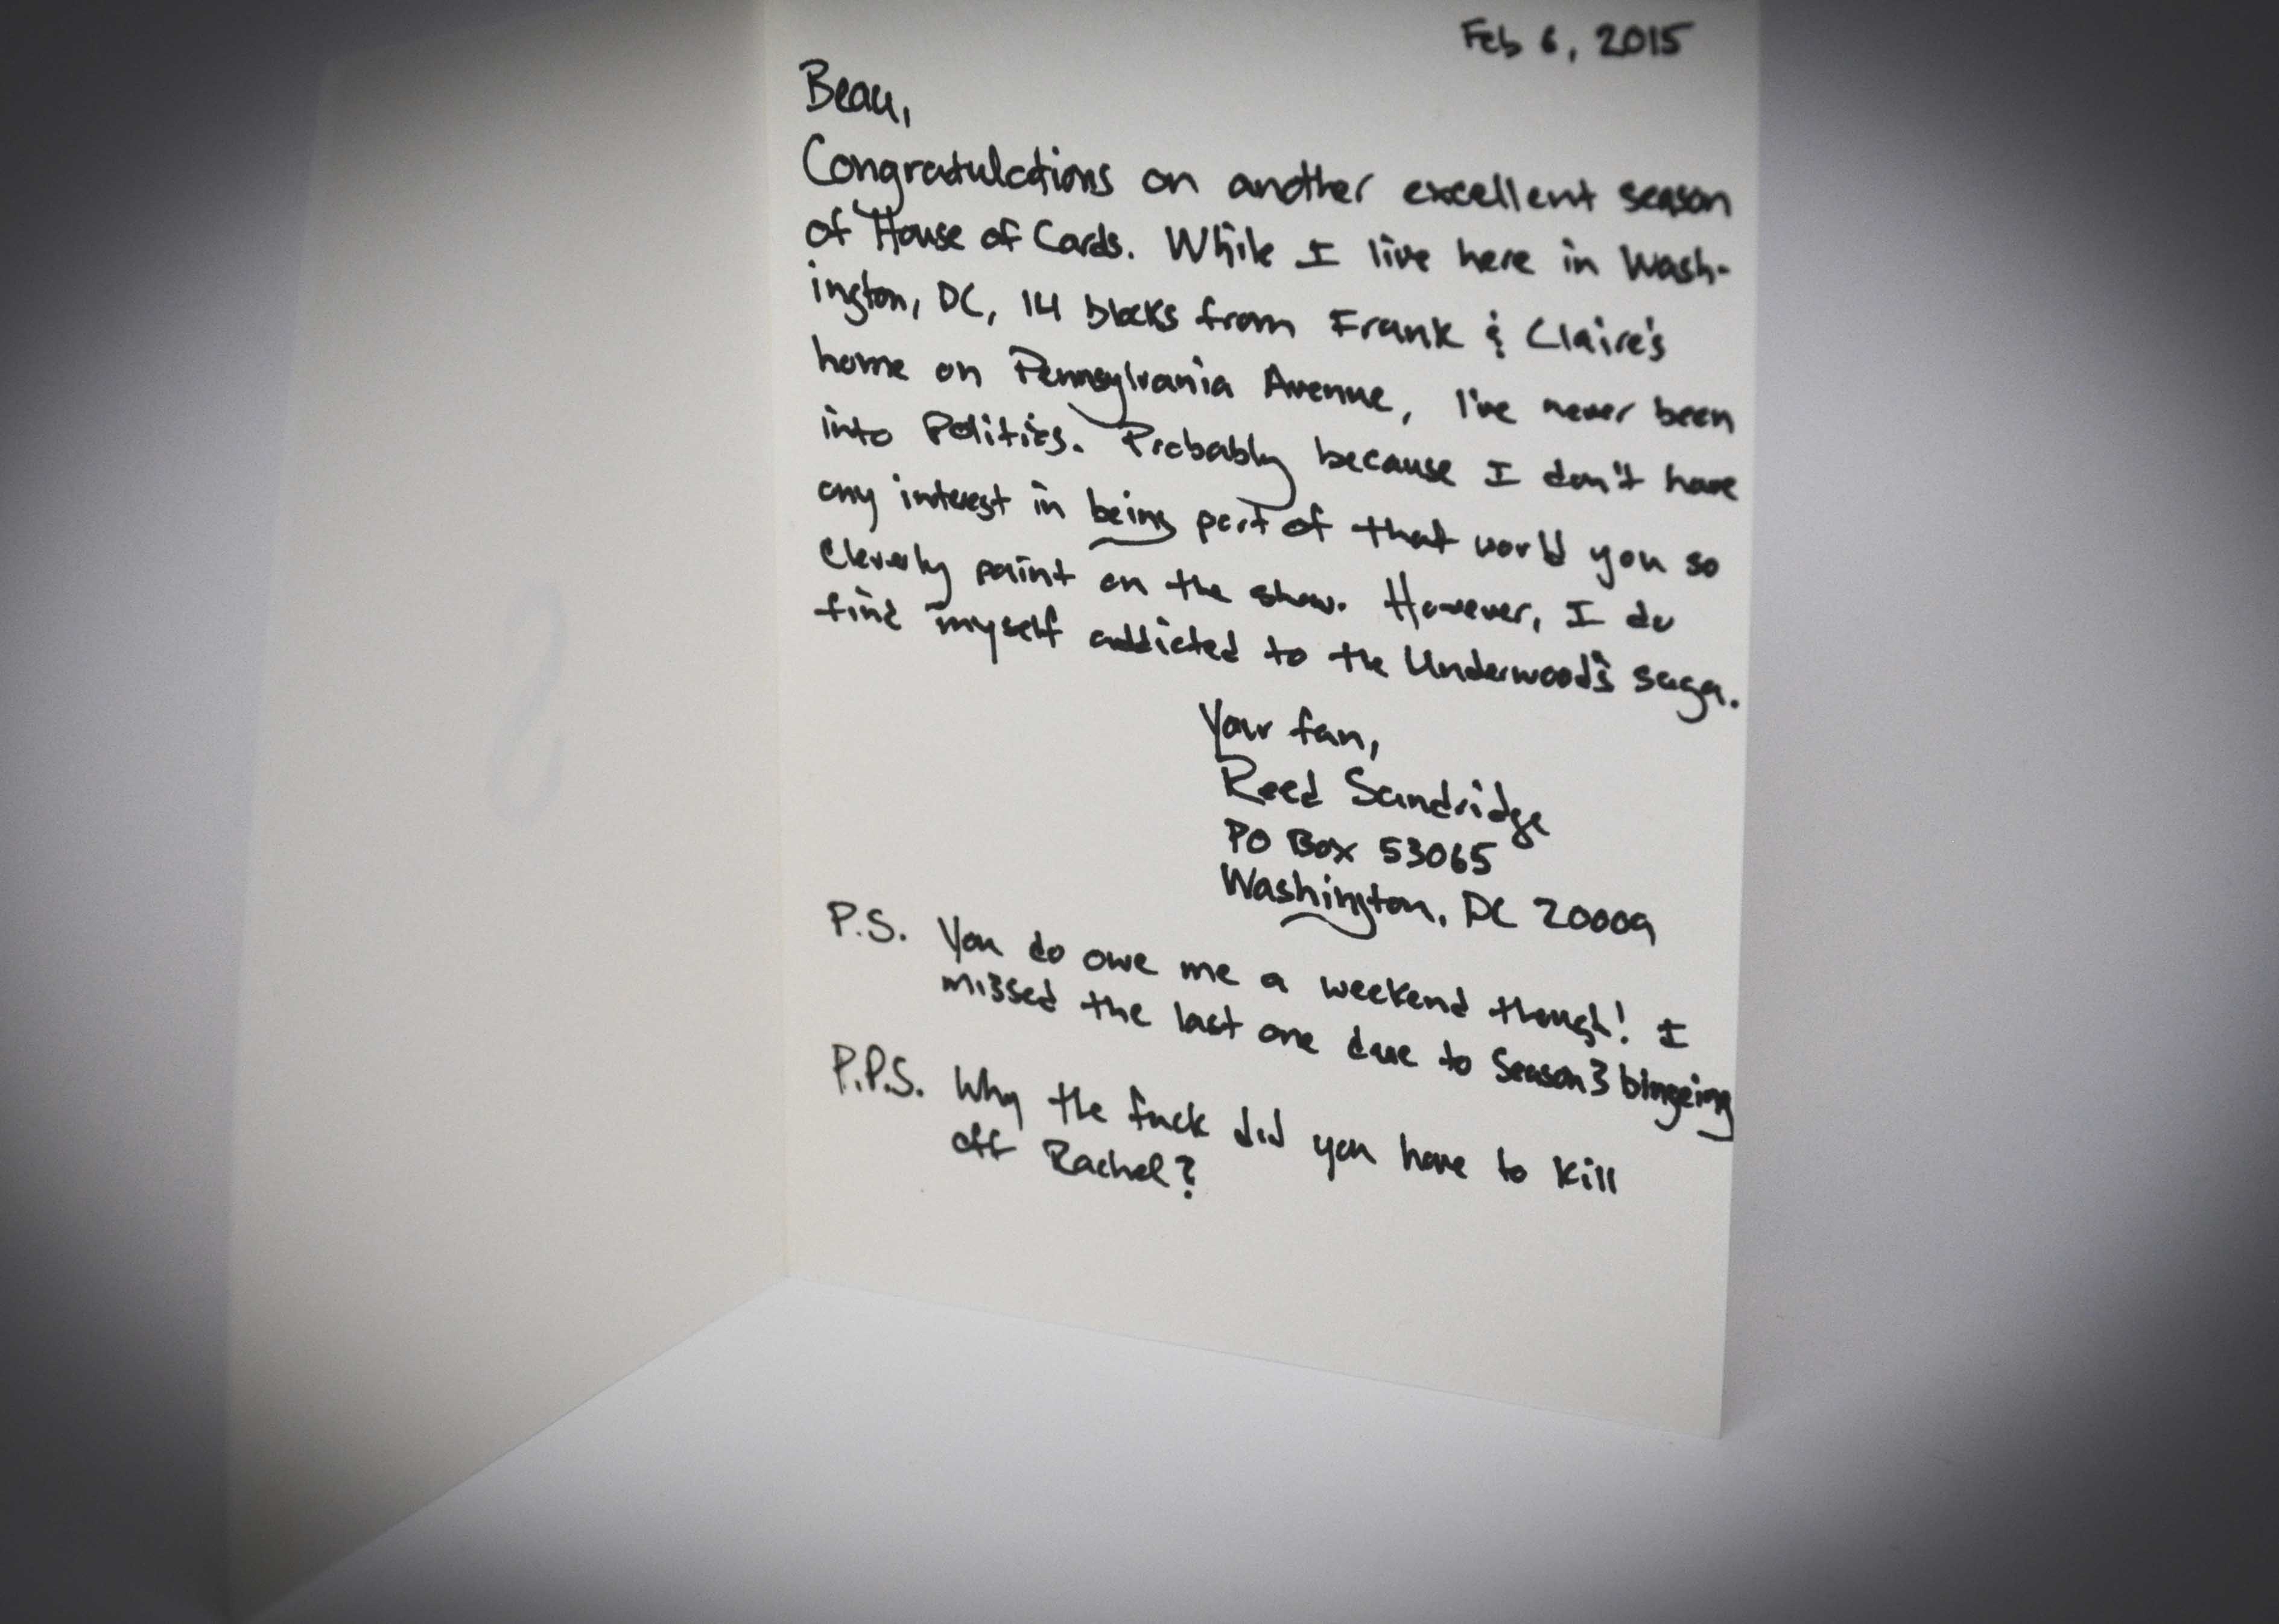 Feb 6, 2015
Beau,
Congratulations on another excellent season
of House of Cards. While I live here in Wash-
ington, DC, 14 blocks from Frank & Claire's
home on Pennsylvania Avenue, I've never been
into Politics. Probably because I don't have
any interest in being part of that world you so
cleverly paint on the show. However, I do
find myself addicted to the Underwood's saga.
Your fan,
Reed Sandridge
PO Box 53065
Washington, DC 20009
P.S. You do owe me a weekend though! I
missed the last one due to Season 3 bingeing
P.P.S. Why the fuck did you have to kill
off Rachel?